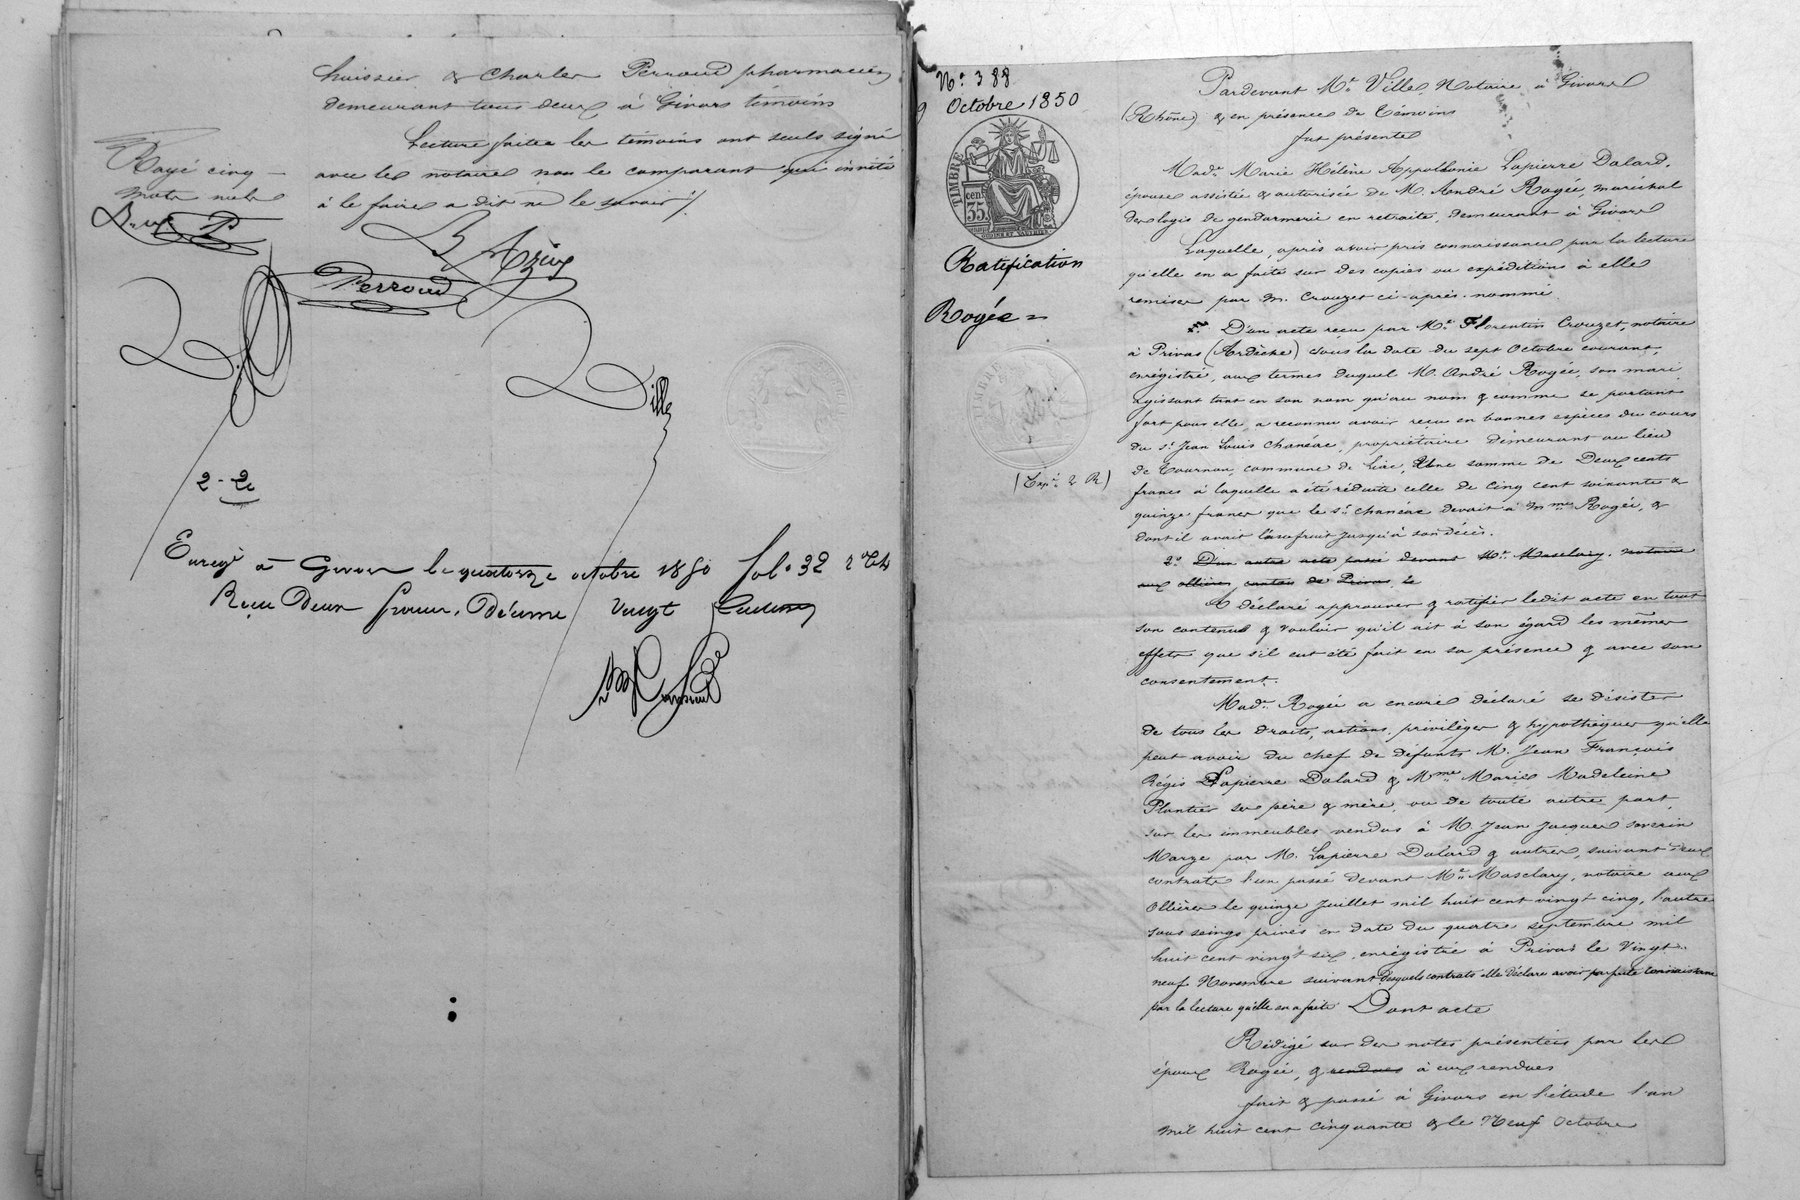 huissier & Charles Perroud pharmacien
demeurant tous deux à Givors témoins
Lecture faite les témoins ont seuls signé
avec les notaires non le comparant qui invité
à le faire a dit ne le savoir ./.
Rayé cinq
mots nuls
P
Perroud
Ville
2 - 2c
Enregé à Givors le quatorze octobre 1850 fol. 32
Reçu Deux francs, Décime vingt centimes
N° 388
9 Octobre 1850
TIMBRE
35 cen.
Ratification
Rogée =
TIMBRE
(Exp. 2 R)
Pardevant Me Ville Notaire à Givors
(Rhône) & en présence de témoins
fut présente
Made Marie Hélène Appollonie Lapierre Dalard,
épouse assistée & autorisée de M. André Rogée maréchal
des logis de gendarmerie en retraite, demeurant à Givors
Laquelle, après avoir pris connaissance par la lecture
qu'elle en a faite sur des copies ou expéditions à elle
remises par M. Crouzet ci-après nommé
D'un acte reçu par Me Florentin Crouzet, notaire
à Privas (Ardèche) sous la date du sept Octobre courant,
enregistré, aux termes duquel M. André Rogée, son mari
agissant tant en son nom qu'au nom & comme se portant
fort pour elle, a reconnu avoir reçu en bonnes espèces du cours
du sr Jean Louis Chanéac, propriétaire demeurant au lieu
de Tournon, commune de Lias, une somme de Deux cents
francs à laquelle a été réduite celle de cinq cent soixante &
quinze francs que le sr Chanéac devait à Mme Rogée, &
dont il avait l'usufruit jusqu'à son décès.
2° D'un autre acte passé devant Me Masclary, notaire
aux ollières canton de Privas le
A déclaré approuver & ratifier ledit acte en tout
son contenu & vouloir qu'il ait à son égard les mêmes
effets que s'il eut été fait en sa présence & avec son
consentement.
Made Rogée a encore déclaré se désister
de tous les droits, actions, privilèges & hypothèques qu'elle
peut avoir du chef de défunts M. Jean François
Régis Lapierre Dalard & Mme Marie Madeleine
Plantier ses père & mère, ou de toute autre part,
sur les immeubles vendus à M. Jean Jacques Severin
Marze par M. Lapierre Dalard & autres, suivant deux
contrats l'un passé devant Me Masclary, notaire aux
Ollières le quinze Juillet mil huit cent vingt cinq, l'autre
sous seings privés en date du quatre septembre mil
huit cent vingt six, enregistré à Privas le Vingt-
neuf Novembre suivant desquels contrats elle déclare avoir parfaite connaissance
par la lecture qu'elle en a faite. Dont acte
Rédigé sur des notes présentées par les
époux Rogée, & rendues à eux rendues
fait & passé à Givors en l'étude l'an
mil huit cent cinquante & le Neuf Octobre